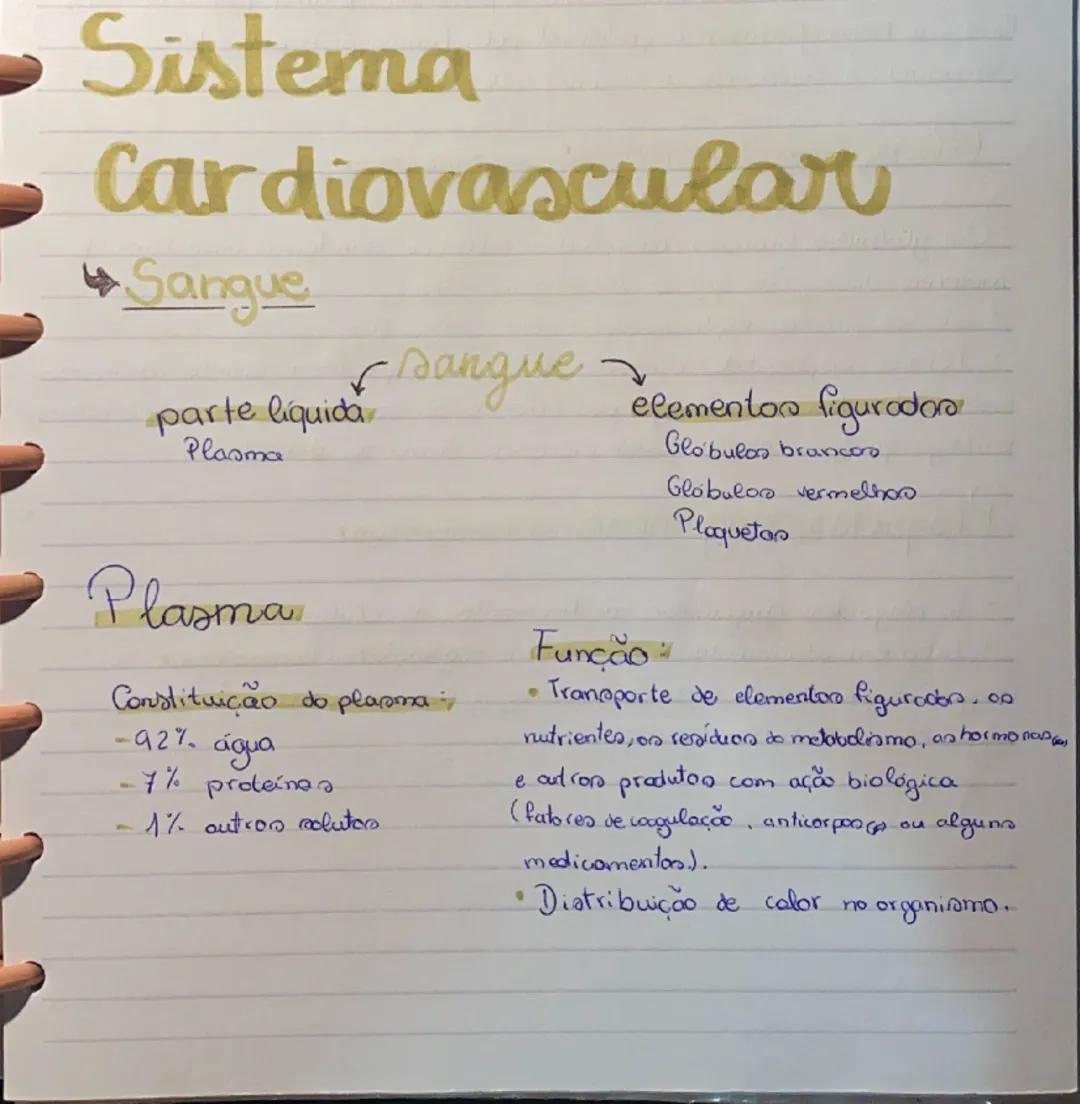 Sistema
Cardiovascular
Sangue
sangue
parte líquida
Plasma
elementos figurados
Glóbulos brancos
Glóbulos vermelhos
Plaquetas
Plasma
Constituição do plasma:
-92% água
-7% proteínas
-1% outros solutos
Função:
• Transporte de elementos figurados, os
nutrientes, os resíduos do metabolismo, as hormonas
e outros produtos com ação biológica
(fatores de coagulação, anticorpos ou alguns
medicamentos).
• Distribuição de calor no organismo.